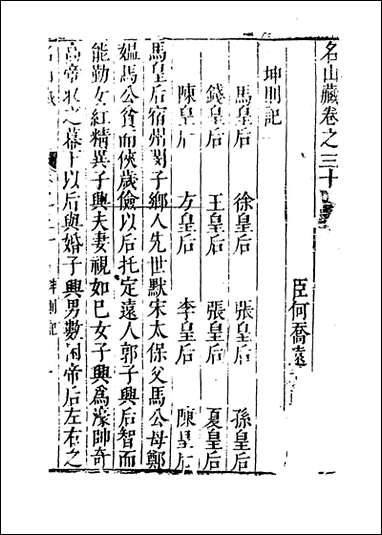 名山藏卷之三十
臣何喬遠
坤則記
馬皇后 徐皇后 張皇后 孫皇后
錢皇后 王皇后 張皇后 夏皇后
陳皇后 方皇后 李皇后 陳皇后
馬皇后宿州閔子鄉人先世默宋太保父馬公母鄭
媼馬公貧而俠歲儉以后托定遠人郭子興后智而
能勤女紅精異子興夫妻視如已女子興爲濠帥奇
高帝收之幕下以后與婚子興男數困帝后左右之
名山藏 坤則記 一